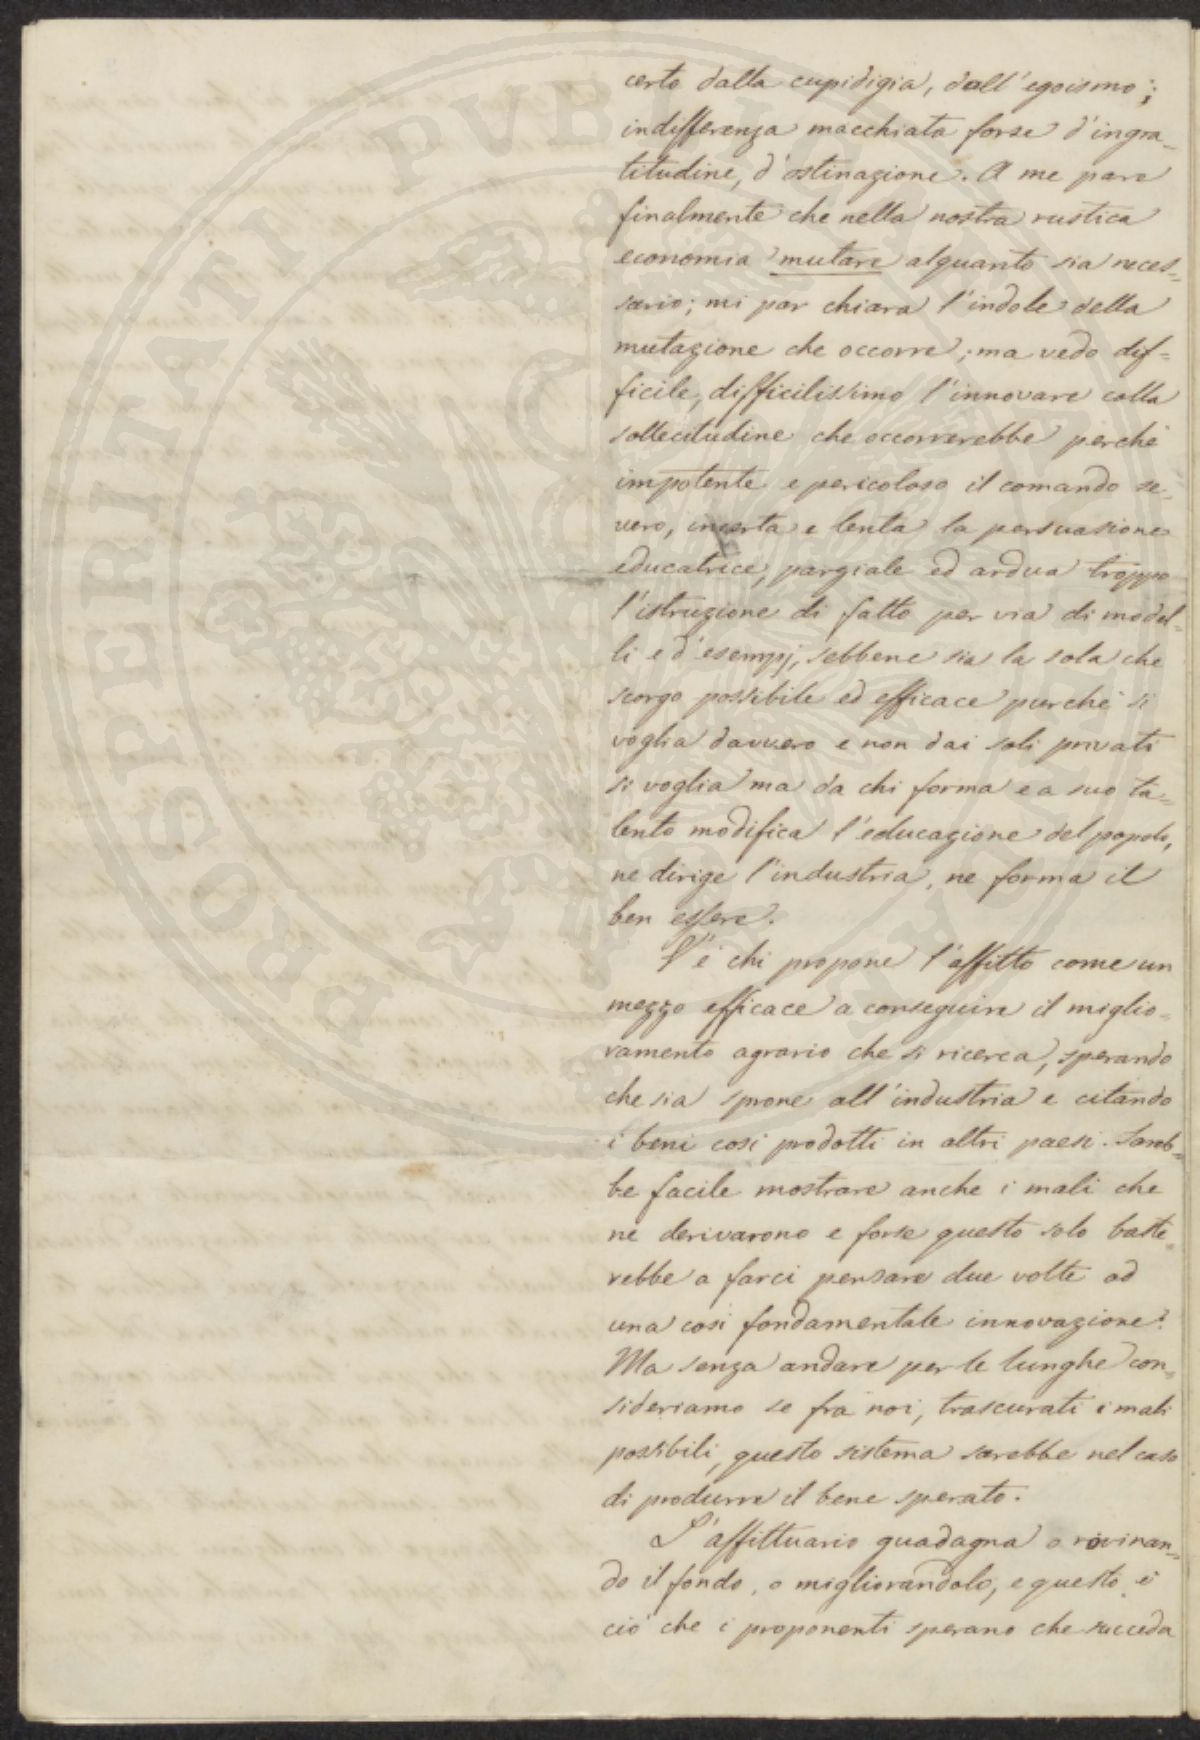 certo dalla cupidigia, dall'egoismo;
indifferenza macchiata forse d'ingra-
titudine, d'ostinazione. A me pare
finalmente che nella nostra rustica
economia mutare alquanto sia neces-
sario; mi par chiara l'indole della
mutazione che occorre; ma vedo dif-
ficile, difficilissimo l'innovare colla
sollecitudine che occorrerebbe perchè
impotente e pericoloso il comando se-
vero, incerta e lenta la persuasione
educatrice, parziale ed ardua troppo
l'istruzione di fatto per via di model-
li e d'esempj, sebbene sia la sola che
scorgo possibile ed efficace purchè si
voglia davvero e non dai soli privati
si voglia ma da chi forma e a suo ta-
lento modifica l'educazione del popolo,
ne dirige l'industria, ne forma il
ben essere.
V'è chi propone l'affitto come un
mezzo efficace a conseguire il miglio-
ramento agrario che si ricerca, sperando
che sia sprone all'industria e citando
i beni così prodotti in altri paesi. Sareb-
be facile mostrare anche i mali che
ne derivarono e forse questo solo baste-
rebbe a farci pensare due volte ad
una così fondamentale innovazione.
Ma senza andare per le lunghe con-
sideriamo se fra noi, trascurati i mali
possibili, questo sistema sarebbe nel caso
di produrre il bene sperato.
L'affittuario guadagna o rovinan-
do il fondo, o migliorandolo, e questo è
ciò che i proponenti sperano che succeda
PROSPERITATI PUBLICAE